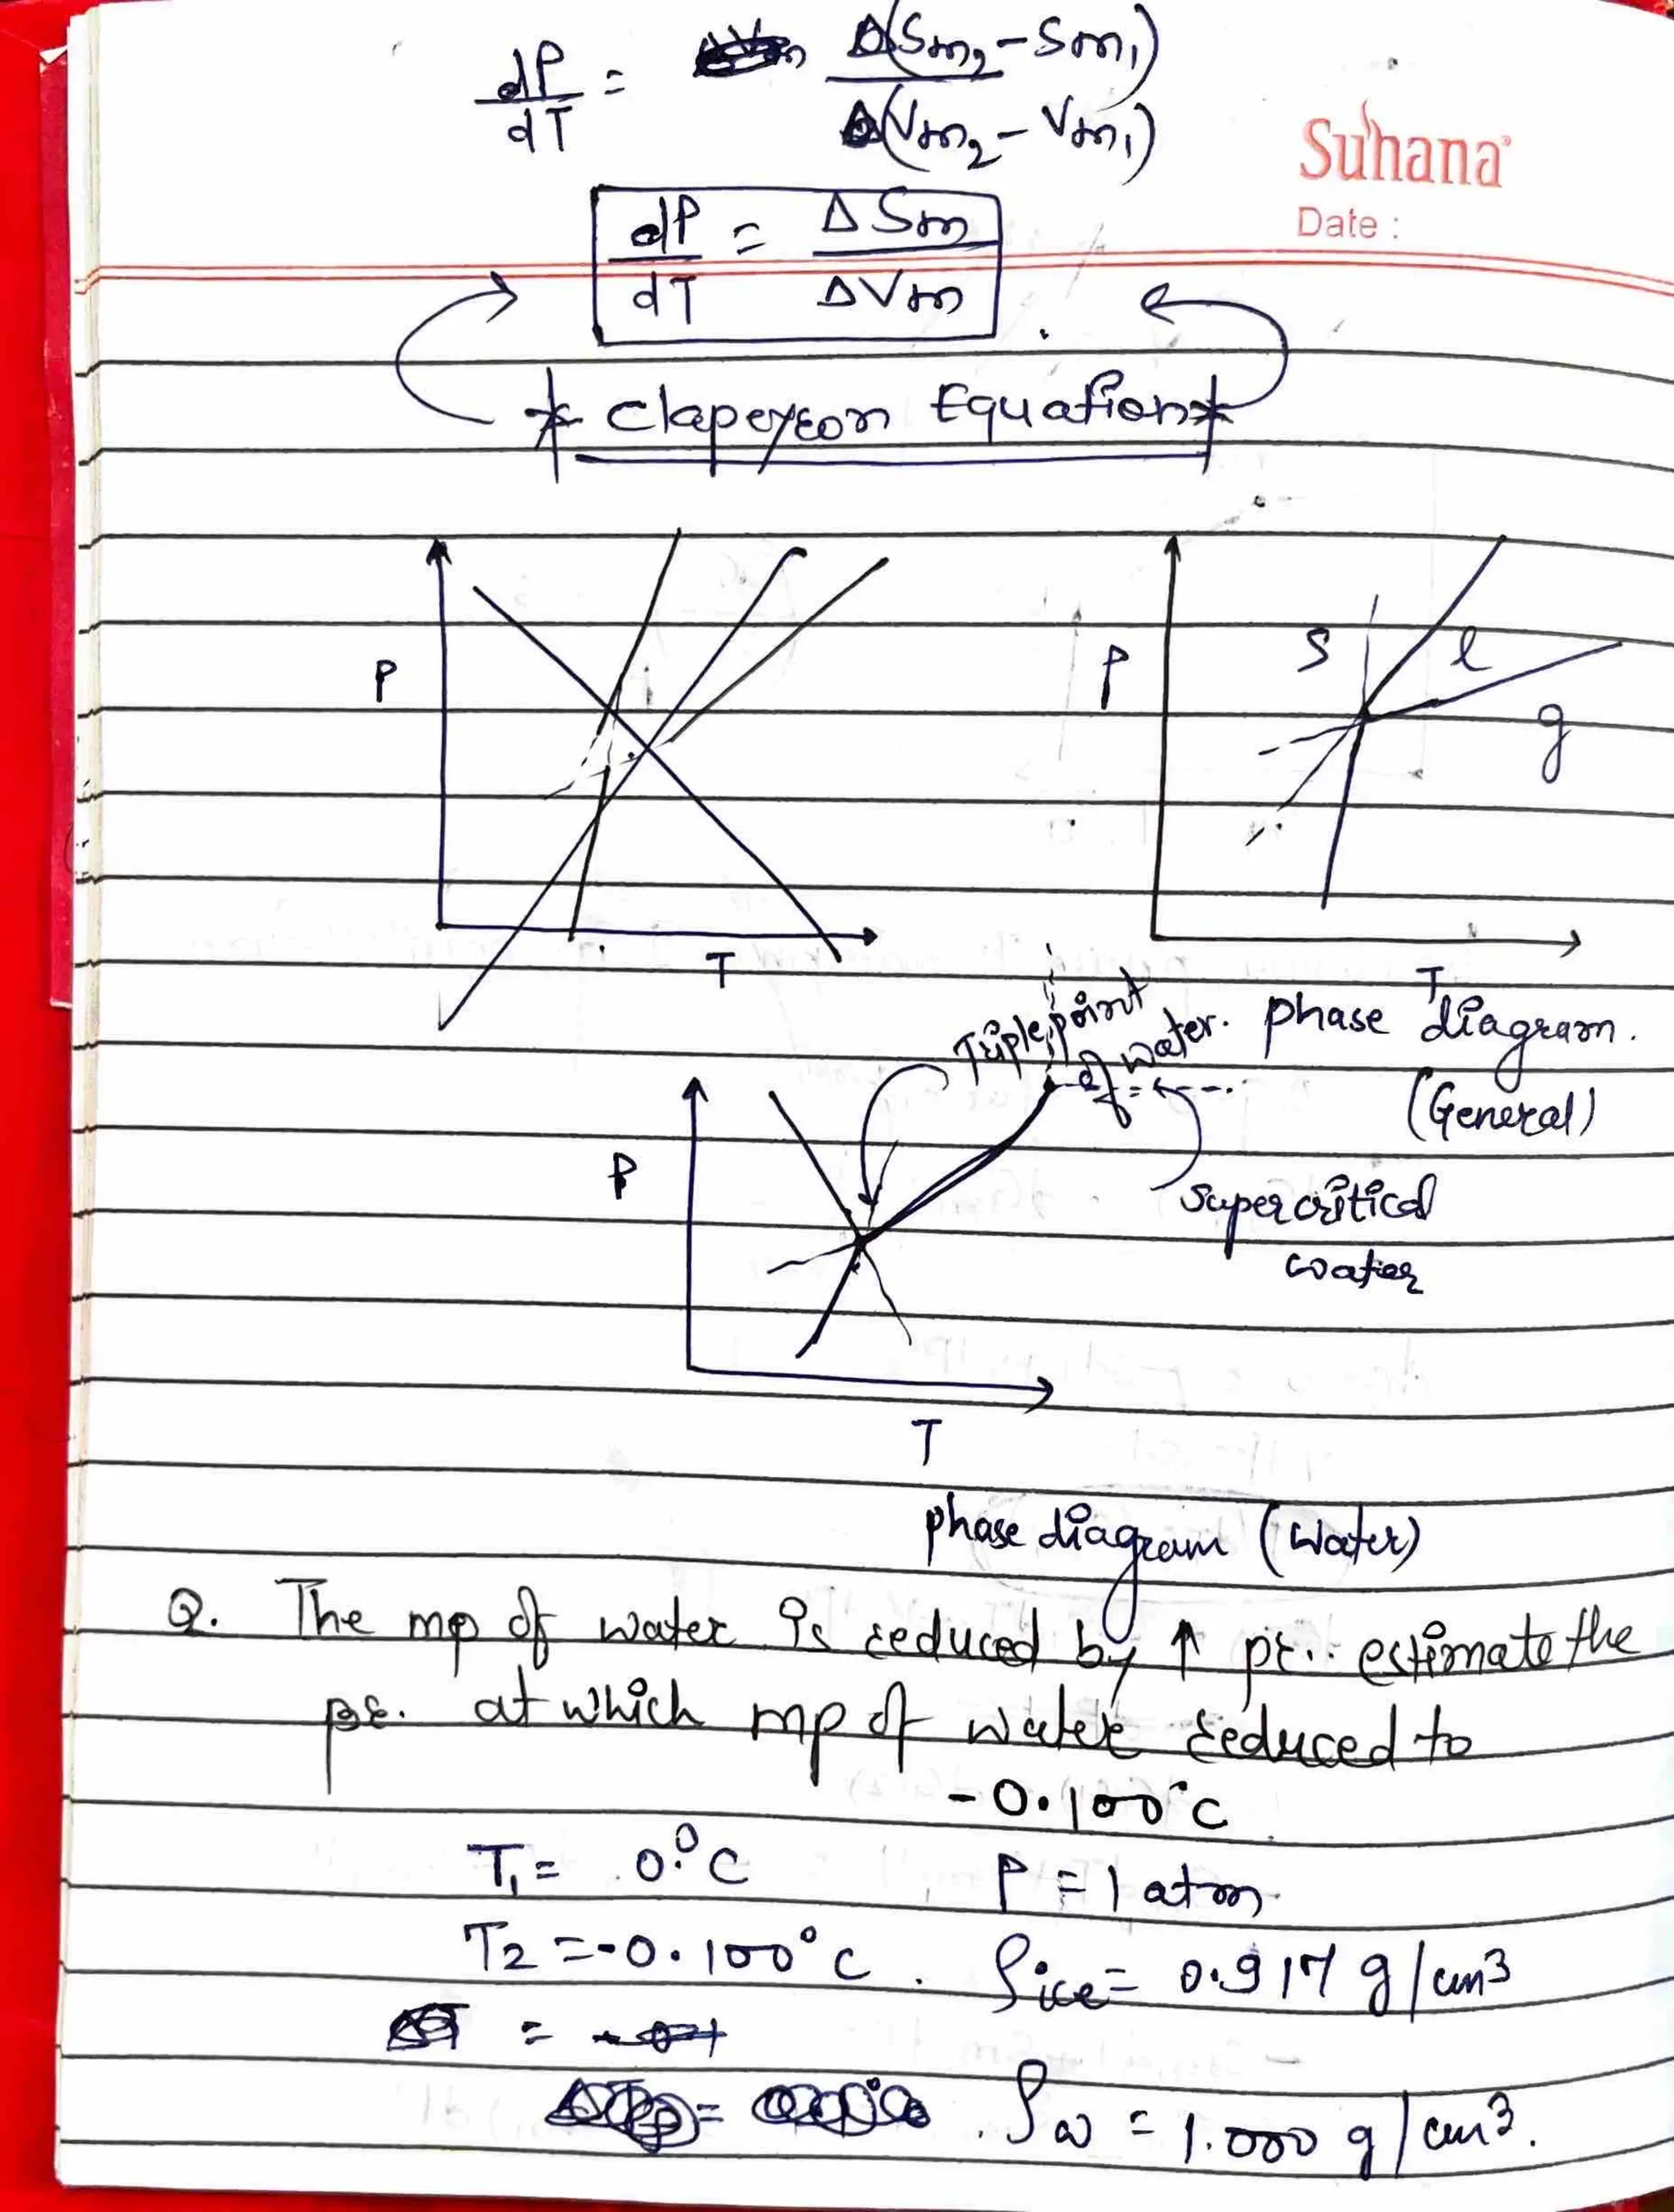 dP/dT = Δ(Sm₂ - Sm₁) / Δ(Vm₂ - Vm₁)
Suhana
Date :
dP/dT = ΔSm / ΔVm
* Clapeyron Equation *
P
T
P
S
l
g
T
Phase diagram.
(General)
Triple point
of water.
Supercritical
water
P
T
phase diagram (water)
Q. The mp of water is reduced by ↑ pr. estimate the
pr. at which mp of water reduced to
-0.100°C
T₁ = 0°C P = 1 atm
T₂ = -0.100°C. ρice = 0.917 g/cm³
ρw = 1.000 g/cm³.